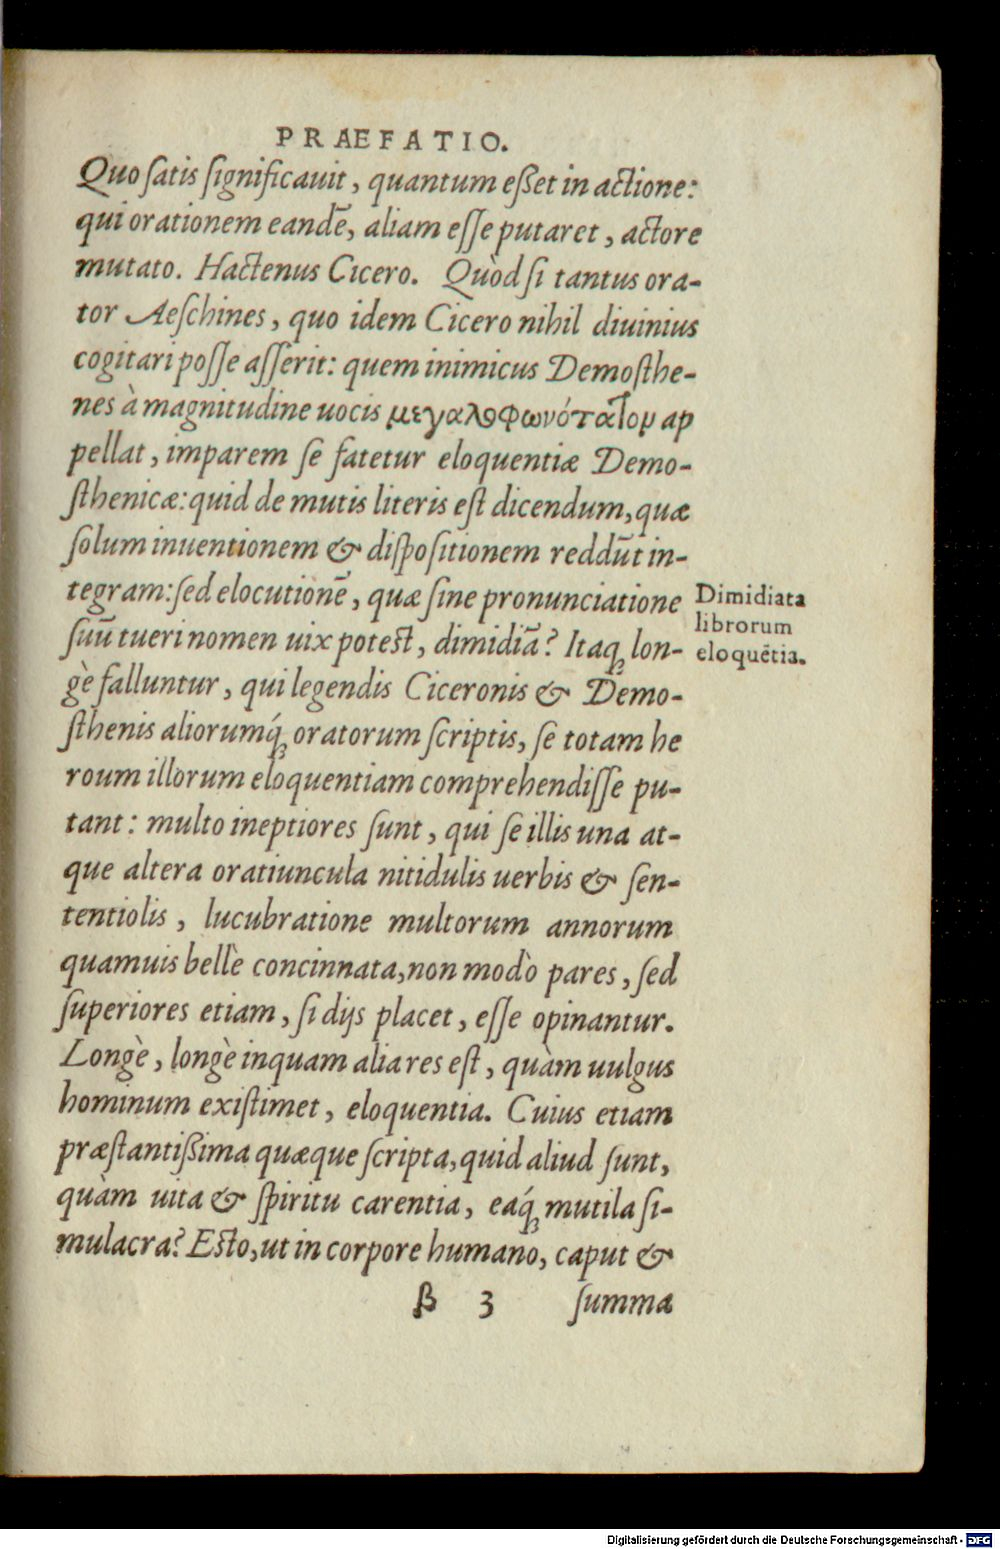 PRAEFATIO.
Quo ſatis ſignificauit, quantum eßet in actione:
qui orationem eandē, aliam eſſe putaret, actore
mutato. Hactenus Cicero. Quòd ſi tantus ora-
tor Aeſchines, quo idem Cicero nihil diuinius
cogitari poſſe aſſerit: quem inimicus Demoſthe-
nes à magnitudine uocis μεγαλοφωνότατον ap
pellat, imparem ſe fatetur eloquentiæ Demo-
ſthenicæ: quid de mutis literis eſt dicendum, quæ
ſolum inuentionem & diſpoſitionem reddūt in-
tegram: ſed elocutionē, quæ ſine pronunciatione
ſuū tueri nomen uix poteſt, dimidiā? Itaq; lon-
gè falluntur, qui legendis Ciceronis & Demo-
ſthenis aliorumq́; oratorum ſcriptis, ſe totam he
roum illorum eloquentiam comprehendiſſe pu-
tant: multo ineptiores ſunt, qui ſe illis una at-
que altera oratiuncula nitidulis uerbis & ſen-
tentiolis, lucubratione multorum annorum
quamuis bellè concinnata, non modò pares, ſed
ſuperiores etiam, ſi dijs placet, eſſe opinantur.
Longè, longè inquam alia res eſt, quàm uulgus
hominum exiſtimet, eloquentia. Cuius etiam
præſtantißima quæque ſcripta, quid aliud ſunt,
quàm uita & ſpiritu carentia, eaq́; mutila ſi-
mulacra? Eſto, ut in corpore humano, caput &
β 3 ſumma
Dimidiata
librorum
eloquētia.
Digitalisierung gefördert durch die Deutsche Forschungsgemeinschaft - DFG